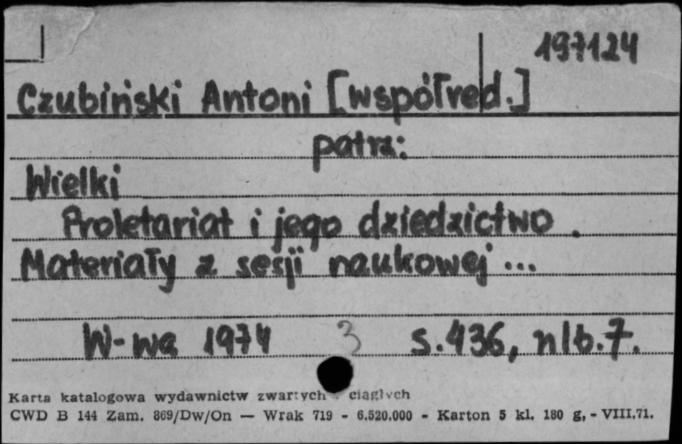 197124
Czubiński Antoni [współred.]
patrz:
Wielki
Proletariat i jego dziedzictwo.
Materiały z sesji naukowej ...
W-wa 1974 3 s. 436, nlb. 7.
Karta katalogowa wydawnictw zwartych - ciągłych
CWD B 144 Zam. 869/Dw/On — Wrak 719 - 6.520.000 - Karton 5 kl. 180 g, - VIII.71.